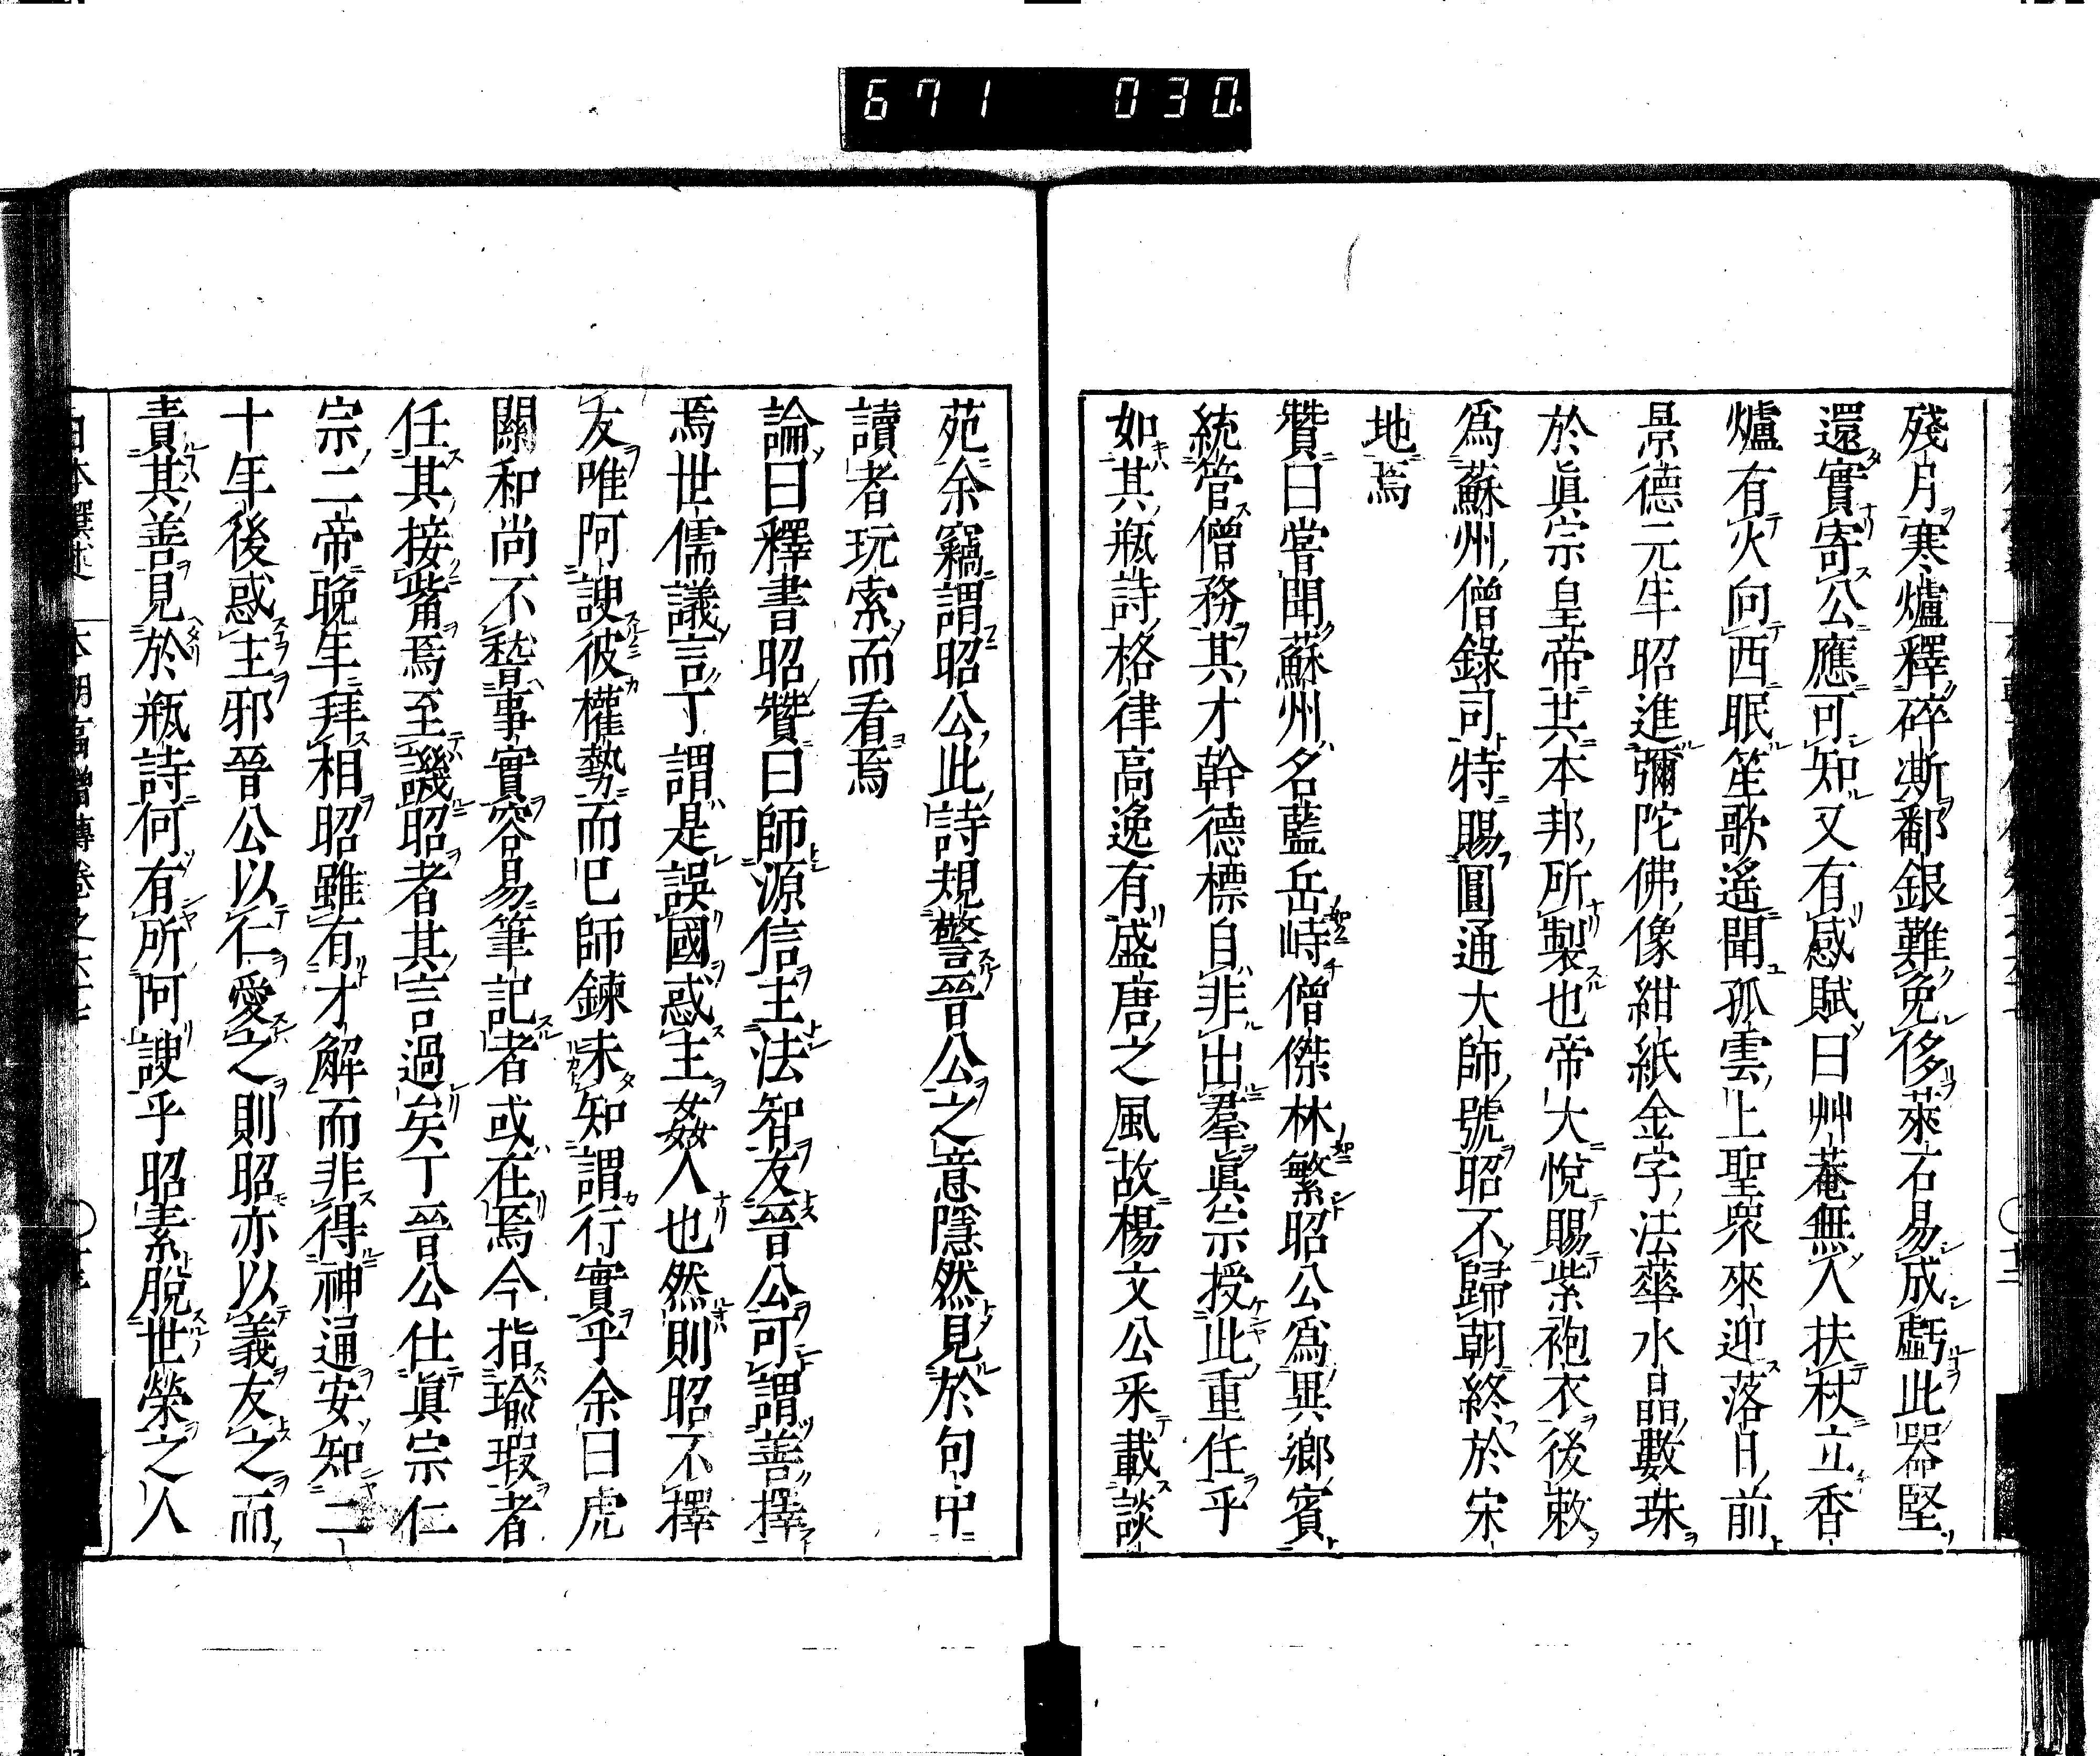 671 030
殘月寒爐釋碎澌鄱銀難免侈萊石易成虧此器堅
還實寄公應可知又有感賦曰艸菴無人扶杖立香
爐有火向西眠笙歌遙聞孤雲上聖衆來迎落日前
景德元年昭進彌陀佛像紺紙金字法華水晶數珠
於眞宗皇帝共本邦所製也帝大悅賜紫袍衣後敕
爲蘇州僧錄司特賜圓通大師號昭不歸朝終於宋
地焉
贊曰嘗聞蘇州名藍岳峙僧傑林繁昭公爲異鄉賓
統管僧務其才幹德標自非出羣眞宗授此重任乎
如其瓶詩格律高逸有盛唐之風故楊文公釆載談
苑余竊謂昭公此詩規警晉公之意隱然見於句中
讀者玩索而看焉
論曰釋書昭贊曰師源信主法智友晉公可謂善擇
焉世儒議言丁謂是誤國惑主姦人也然則昭不擇
友唯阿諛彼權勢而已師鍊未知謂行實乎余曰虎
關和尚不嵇事實容易筆記者或在焉今指瑜瑕者
任其接觜焉至譏昭者其言過矣丁晉公仕眞宗仁
宗二帝晚年拜相昭雖有才解而非得神通安知二
十年後惑主邪晉公以仁愛之則昭亦以義友之而
責其善見於瓶詩何有所阿諛乎昭素脫世榮之人
日本撰述 本朝高僧傳卷之六十七